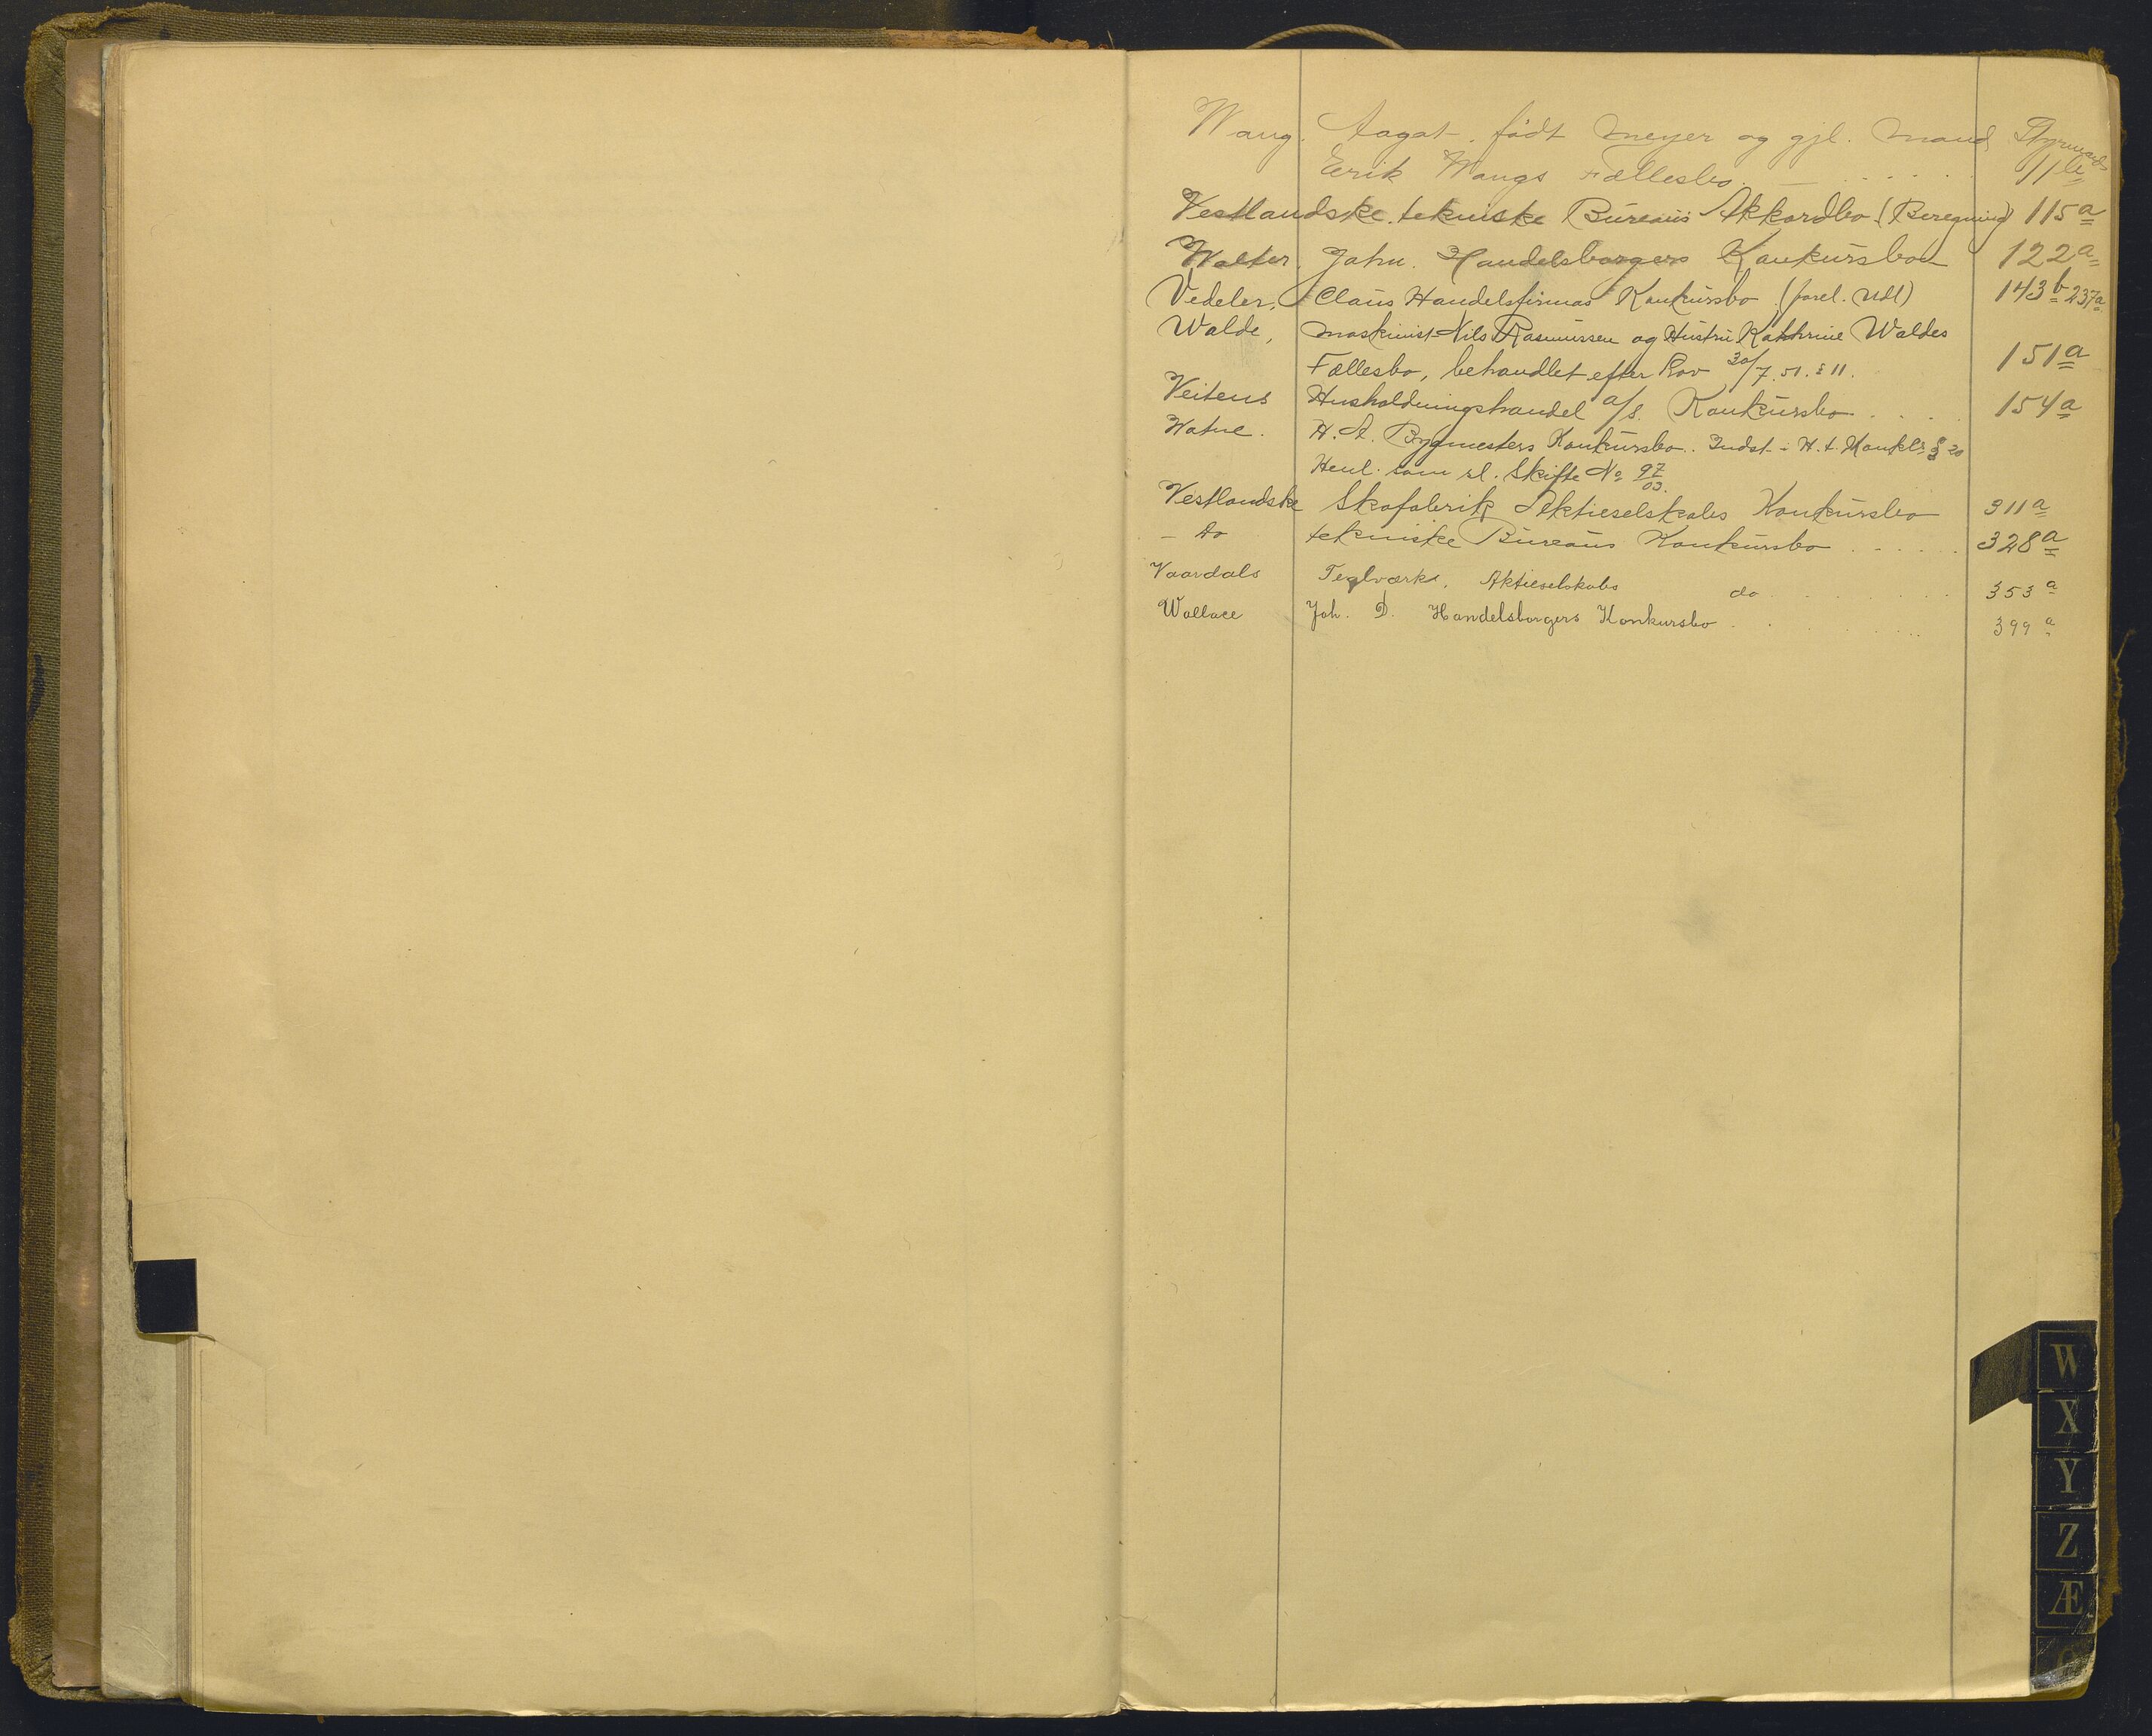 Wang. Aagot. födt Meyer og gjl. Mand Styrmand
Erik Wangs Fællesbo. 11 b
Vestlandske tekniske Büreaüs Akkordbo (Beregning) 115 a
Walter, John. Handelsborgers Konkürsbo 122 a
Vedeler, Claüs Handelsfirmas Konkürsbo (forel. Udl) 143 b 237 a
Walde, Maskinist Nils Rasmüssen og Hüstrü Kathrine Waldes
Fællesbo, behandlet efter Lov 30/7. 51. § 11. 151 a
Veitens Husholdningshandel a/s. Konkürsbo 154 a
Watne. H. A. Bygmesters Konkürsbo. Indst. i H. t. Konkl. § 20
Henl. som sl. Skifte No 97/03.
Vestlandske Skofabrik Aktieselskabs Konkürsbo 311 a
- Do tekniske Büreaüs Konkürsbo 328 a
Vaardals Teglværks, Aktieselskabs do 353 a
Wallace Joh. D. Handelsborgers Konkursbo 399 a
W
X
Y
Z
Æ